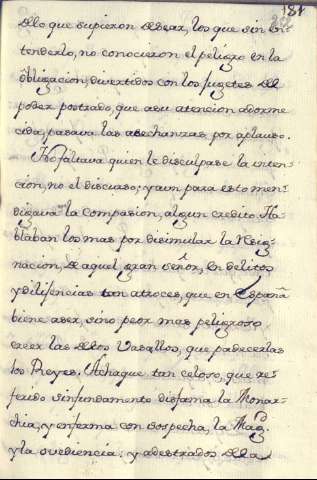 181
dello que supieron desear, los que sin en-
tenderlo, no conocieron el peligro en la
obligacion, divertidos con los jugetes del
poder postrado, que a su atencion adorme
cida, pasava las asechanzas por aplauso.
No faltava quien le disculpase la inten-
cion, no el discurso; y aun para esto men-
digava la compasion, algun credito. Ha-
blaban los mas por disimular la Resig-
nacion, de aquel gran señor, en delitos
y dilijencias tan atroces, que en España
biene aser, sino peor mas peligroso
creer las delos Vasallos, que padecerlas
los Reyes. Achaque tan celoso, que re-
ferido sin fundamento disfama la Monar-
chia, y enferma con sospecha, la Magd.
y la ovediencia: y adestrados de la